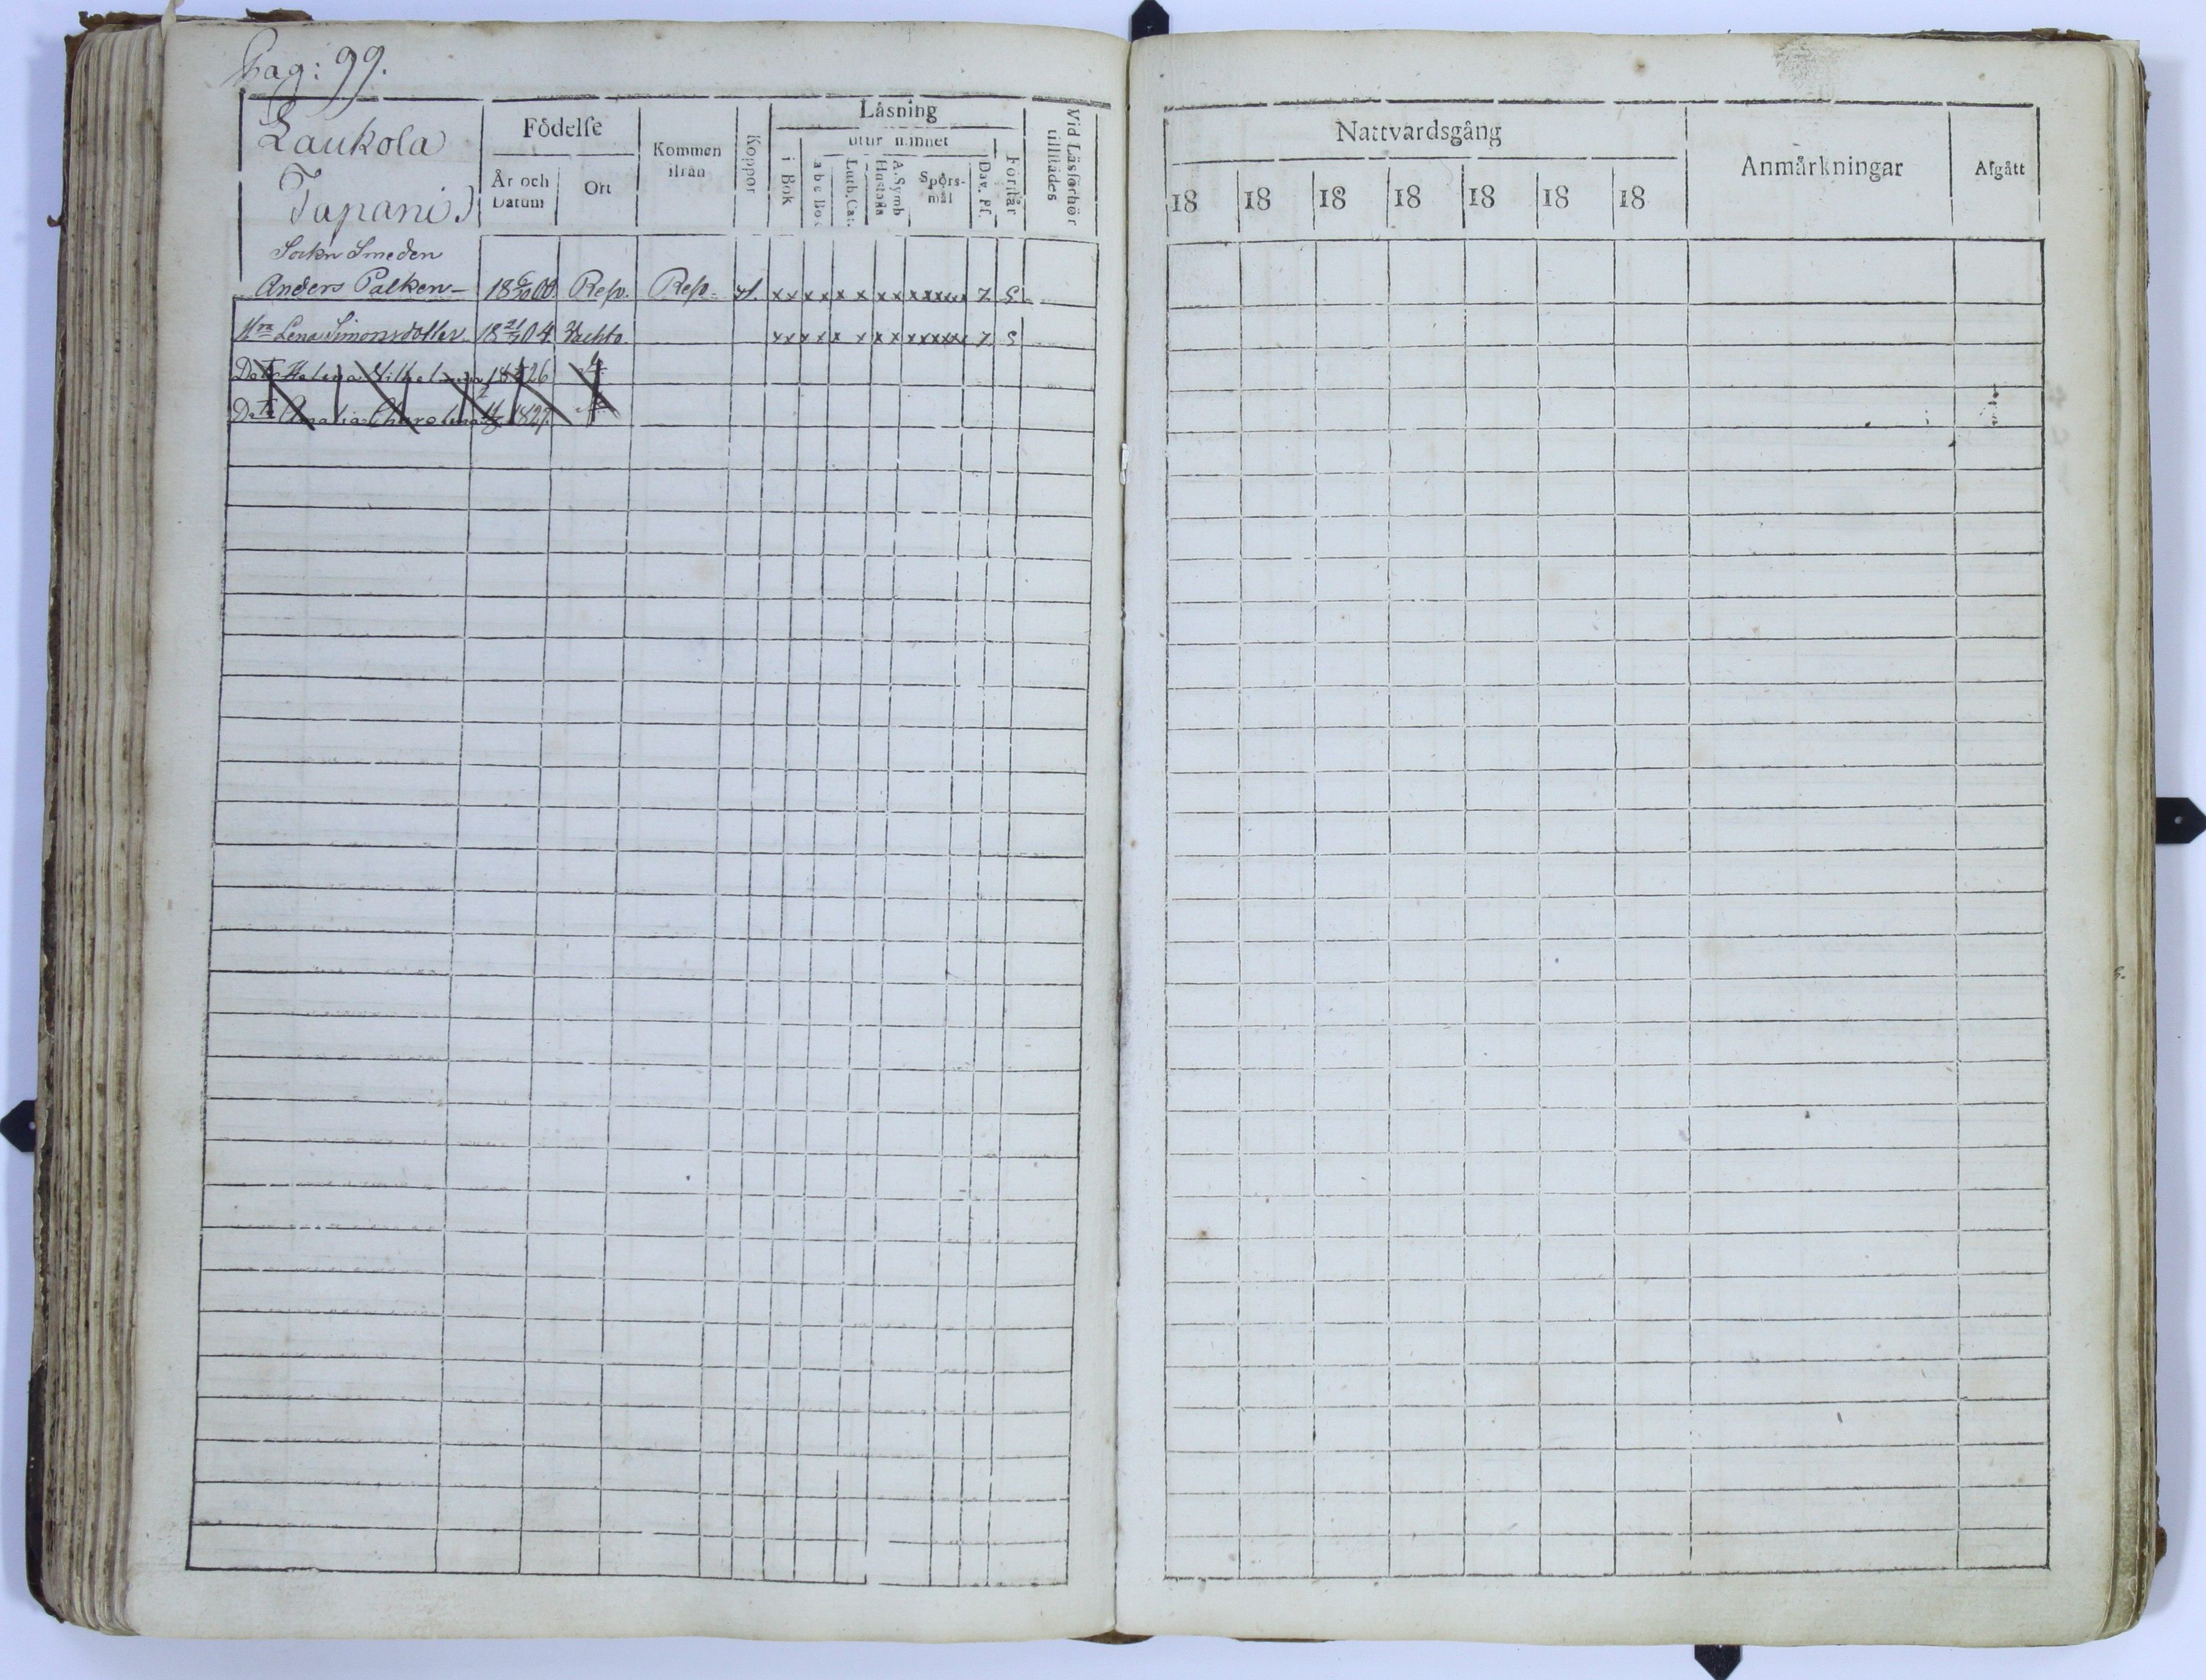 Pag: 99.
Laukola
Tapani
Födelse
År och Datum
Ort
Kommen ifrån
Koppor
Läsning
utur minnet
i Bok
a b c Bok
Luth. Cat.
Hustafla
A. Symb
Spörsmål
Dav. Ps.
Förstår
Vid Läsförhör tillstädes
Nattvardsgång
18 18 18 18 18 18 18
Anmärkningar
Afgått
Sockn Smeden
Anders Palken 18 6/20 00 Reso. Reso. x x x x x x x x x x x x x
Hru Lena Simonsdotter 18 04 x x x x x x x x x x x x x
Dotr Helena Vilhelmina 18 26
Dotr Amalia Charolina 1827